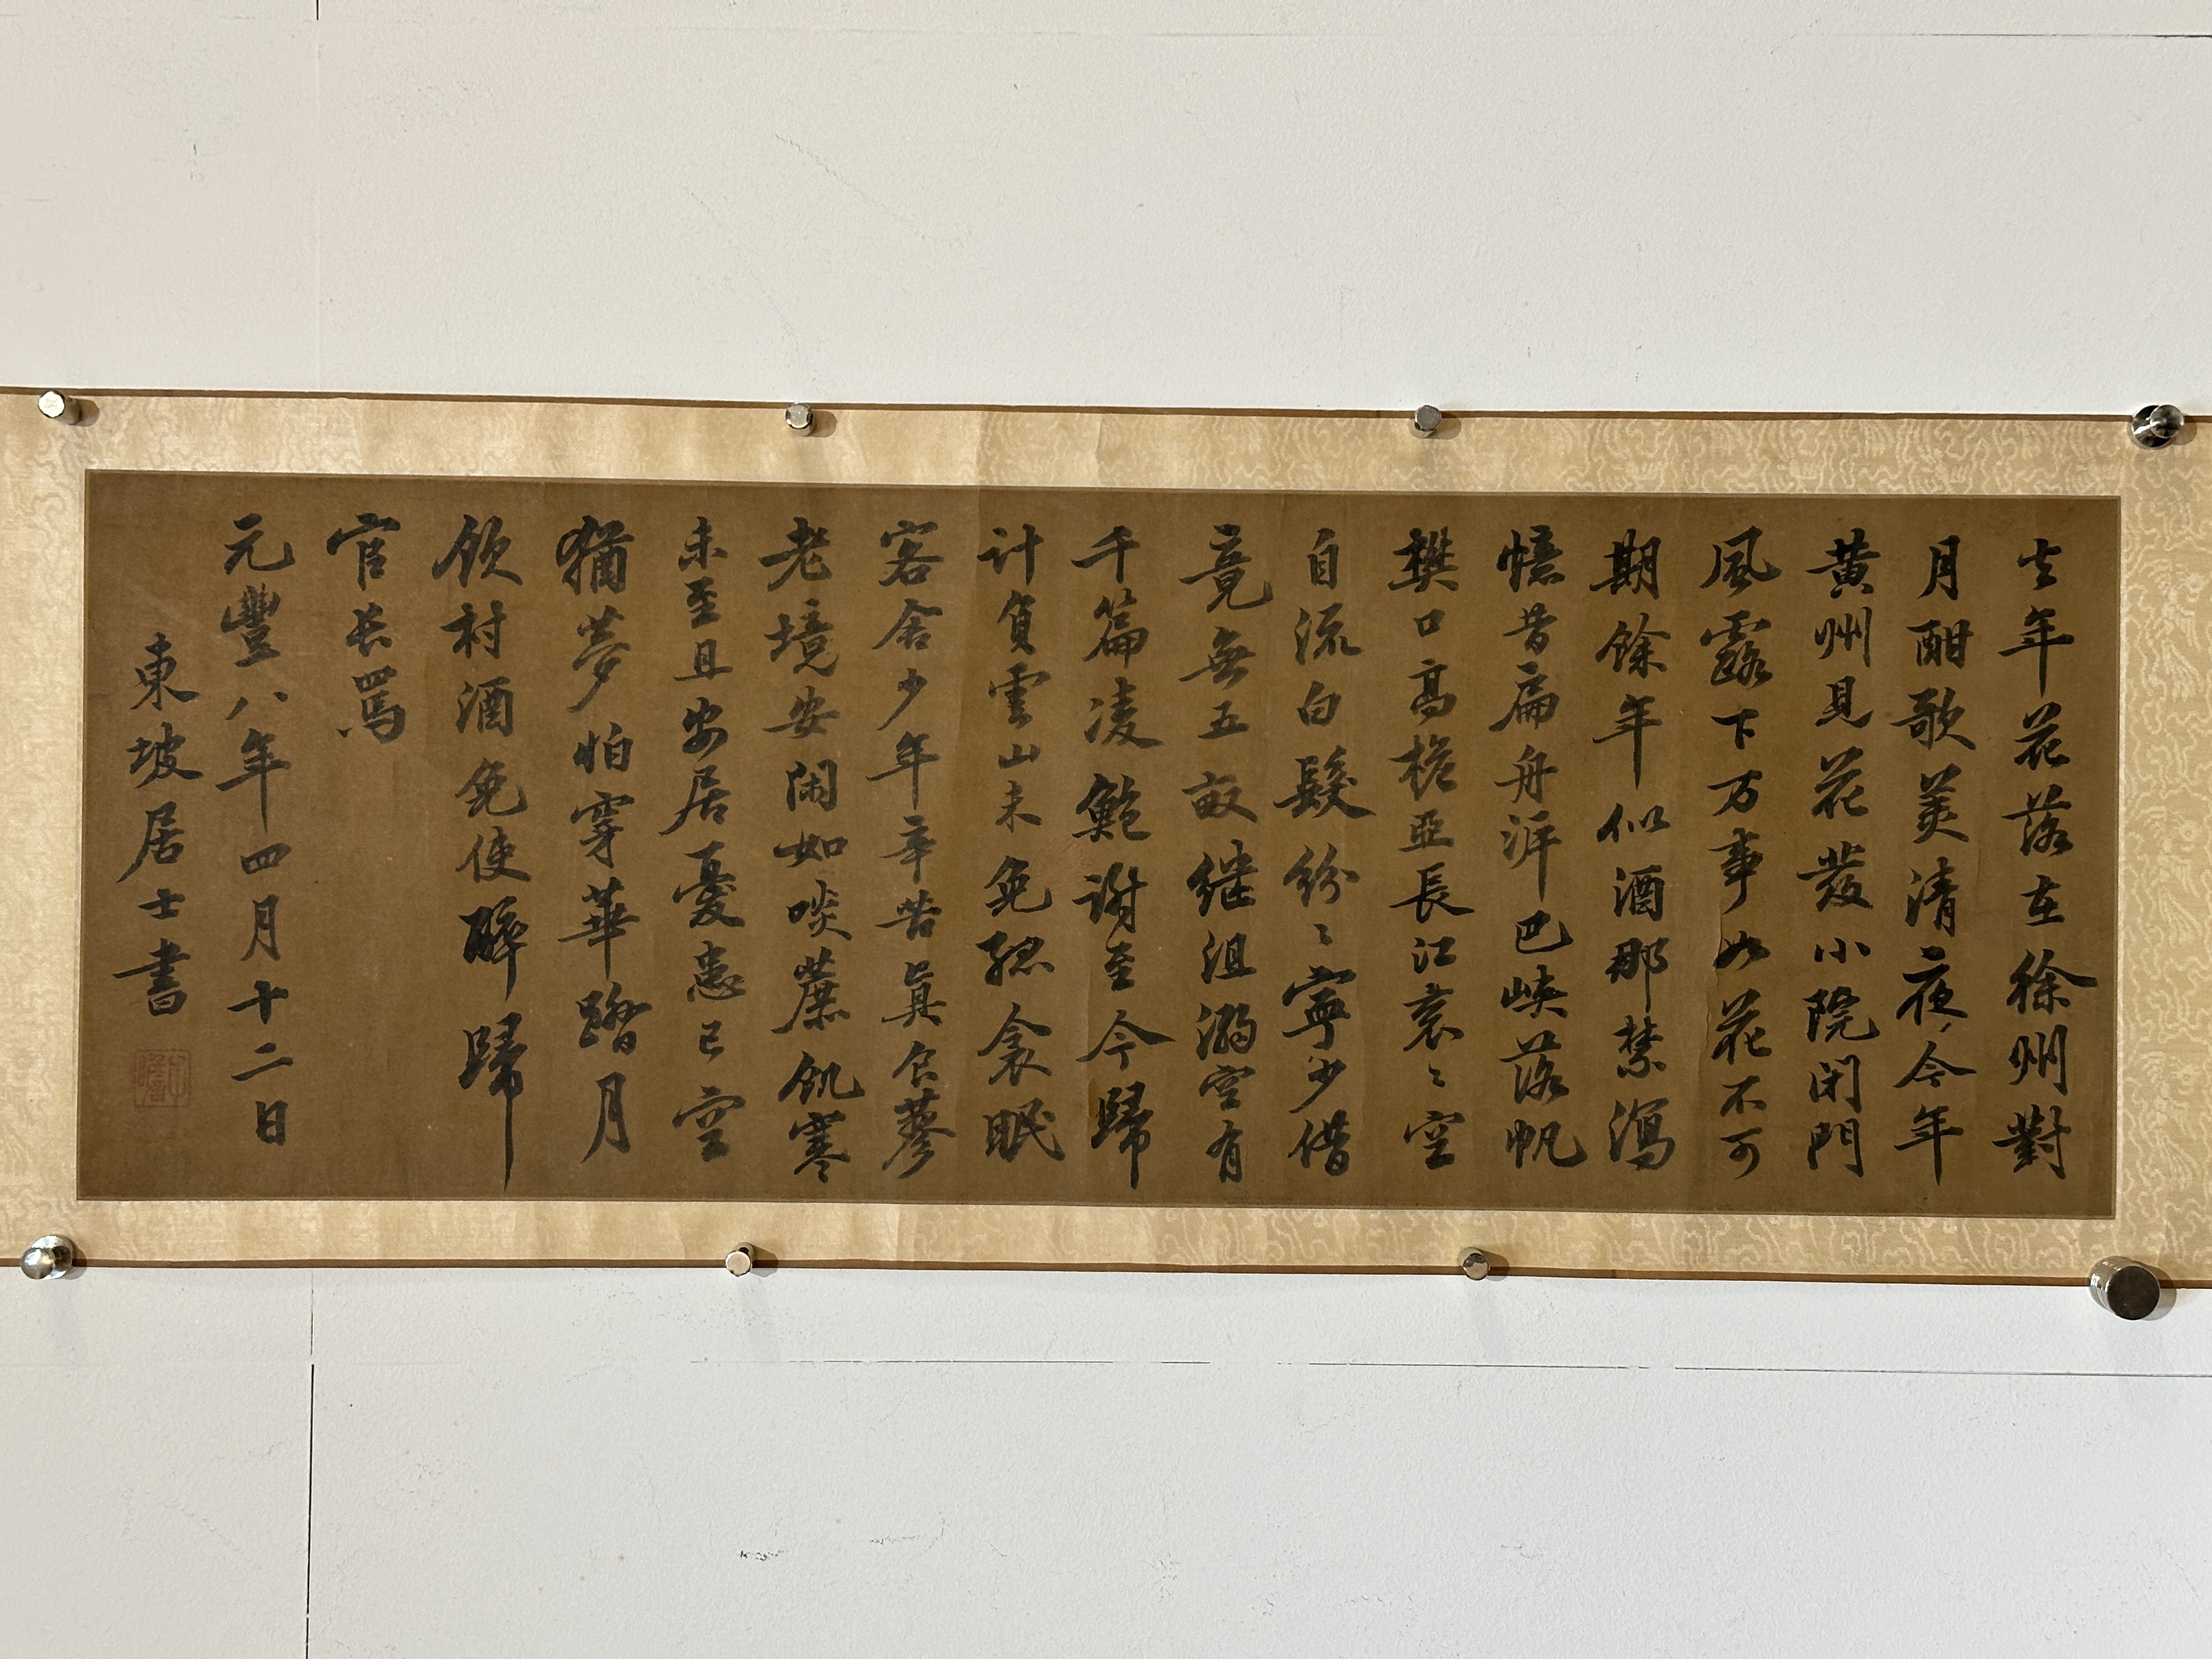 去年花落在徐州對
月酣歌美清夜今年
黄州見花發小院闭門
風露下万事如花不可
期餘年似酒那禁瀉
憶昔扁舟泝巴峡落帆
樊口高桅亞長江衮〻空
自流白髮紛〻寧少借
竟無五畝继沮溺空有
千篇凌鮑謝至今歸
計負雲山未免孤衾眠
客舍少年辛苦真食蓼
老境安閑如啖蔗飢寒
未至且安居憂患已空
猶夢怕穿華踏月
飲村酒免使醉歸
官長罵
元豐八年四月十二日
東坡居士書